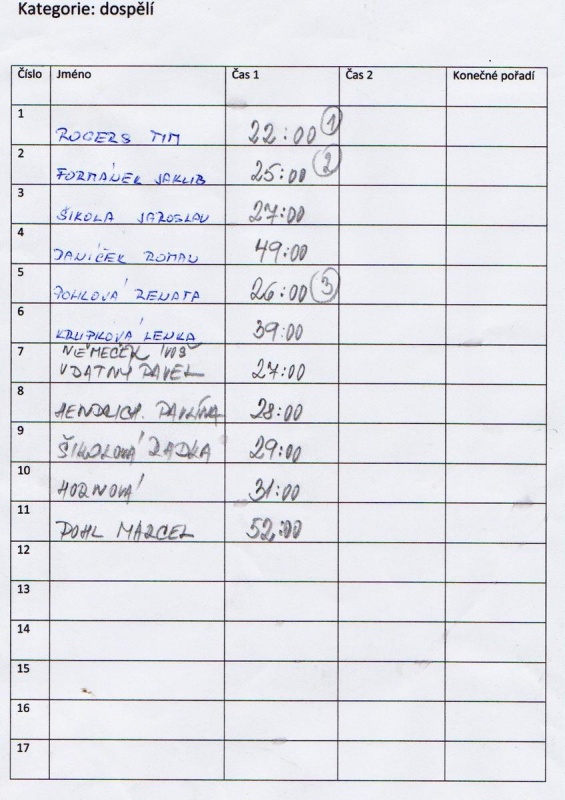 Kategorie: dospělí
Číslo Jméno Čas 1 Čas 2 Konečné pořadí
1 ROGERS TIM 22:00 1
2 FORMÁNEK JAKUB 25:00 2
3 ŠIKOLA JAROSLAV 27:00
4 JANÍČEK ROMAN 49:00
5 POHLOVÁ RENATA 26:00 3
6 KRUPKOVÁ LENKA 39:00
NĚMEČEK
7 VDATNÝ PAVEL 27:00
8 HENDRICH. PAVLÍNA 28:00
9 ŠIKOLOVÁ RADKA 29:00
10 HORNOVÁ 31:00
11 POHL MARCEL 52:00
12
13
14
15
16
17